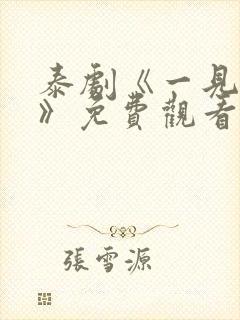 泰劇《一見
》免費觀看
張雪源